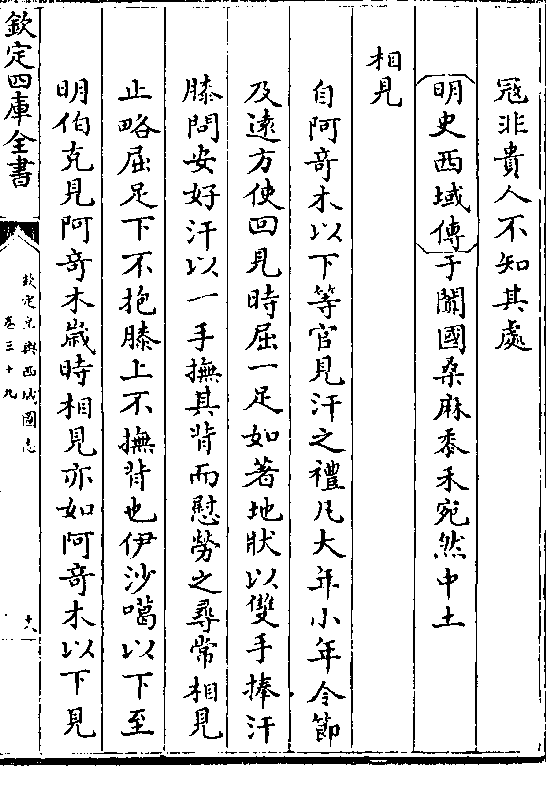 冠非貴人不知其處
明史西域傳于闐國桑麻黍禾宛然中土
相見
自阿奇木以下等官見汗之禮凡大年小年令節
及遠方使回見時屈一足如著地狀以雙手捧汗
膝問安好汗以一手撫其背而慰勞之尋常相見
止略屈足下不抱膝上不撫背也伊沙噶以下至
明伯克見阿奇木歲時相見亦如阿奇木以下見
欽定四庫全書
欽定皇輿西域圖志
卷三十九
十八